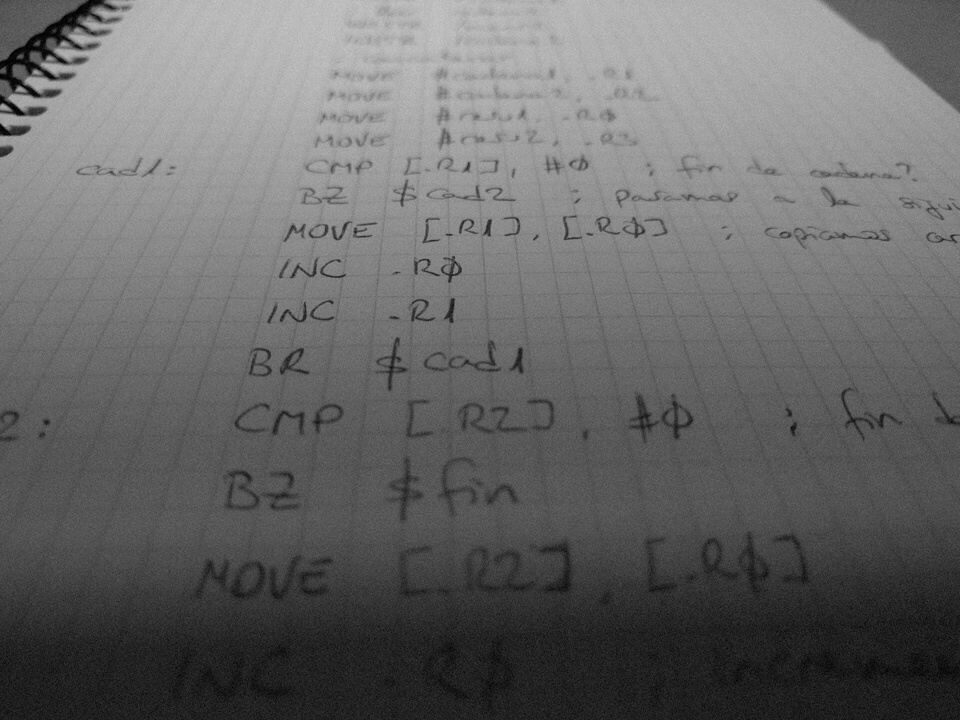 MOVE #cadena1, .R1
MOVE #cadena2, .R2
MOVE #resu1, .RØ
MOVE #resu2, .R3
cad1: CMP [.R1], #Ø ; fin de cadena?
BZ $cad2 ; pasamos a la
MOVE [.R1], [.RØ] ; copiamos
INC .RØ
INC .R1
BR $cad1
2: CMP [.R2], #Ø ; fin
BZ $fin
MOVE [.R2], [.RØ]
INC .RØ ;